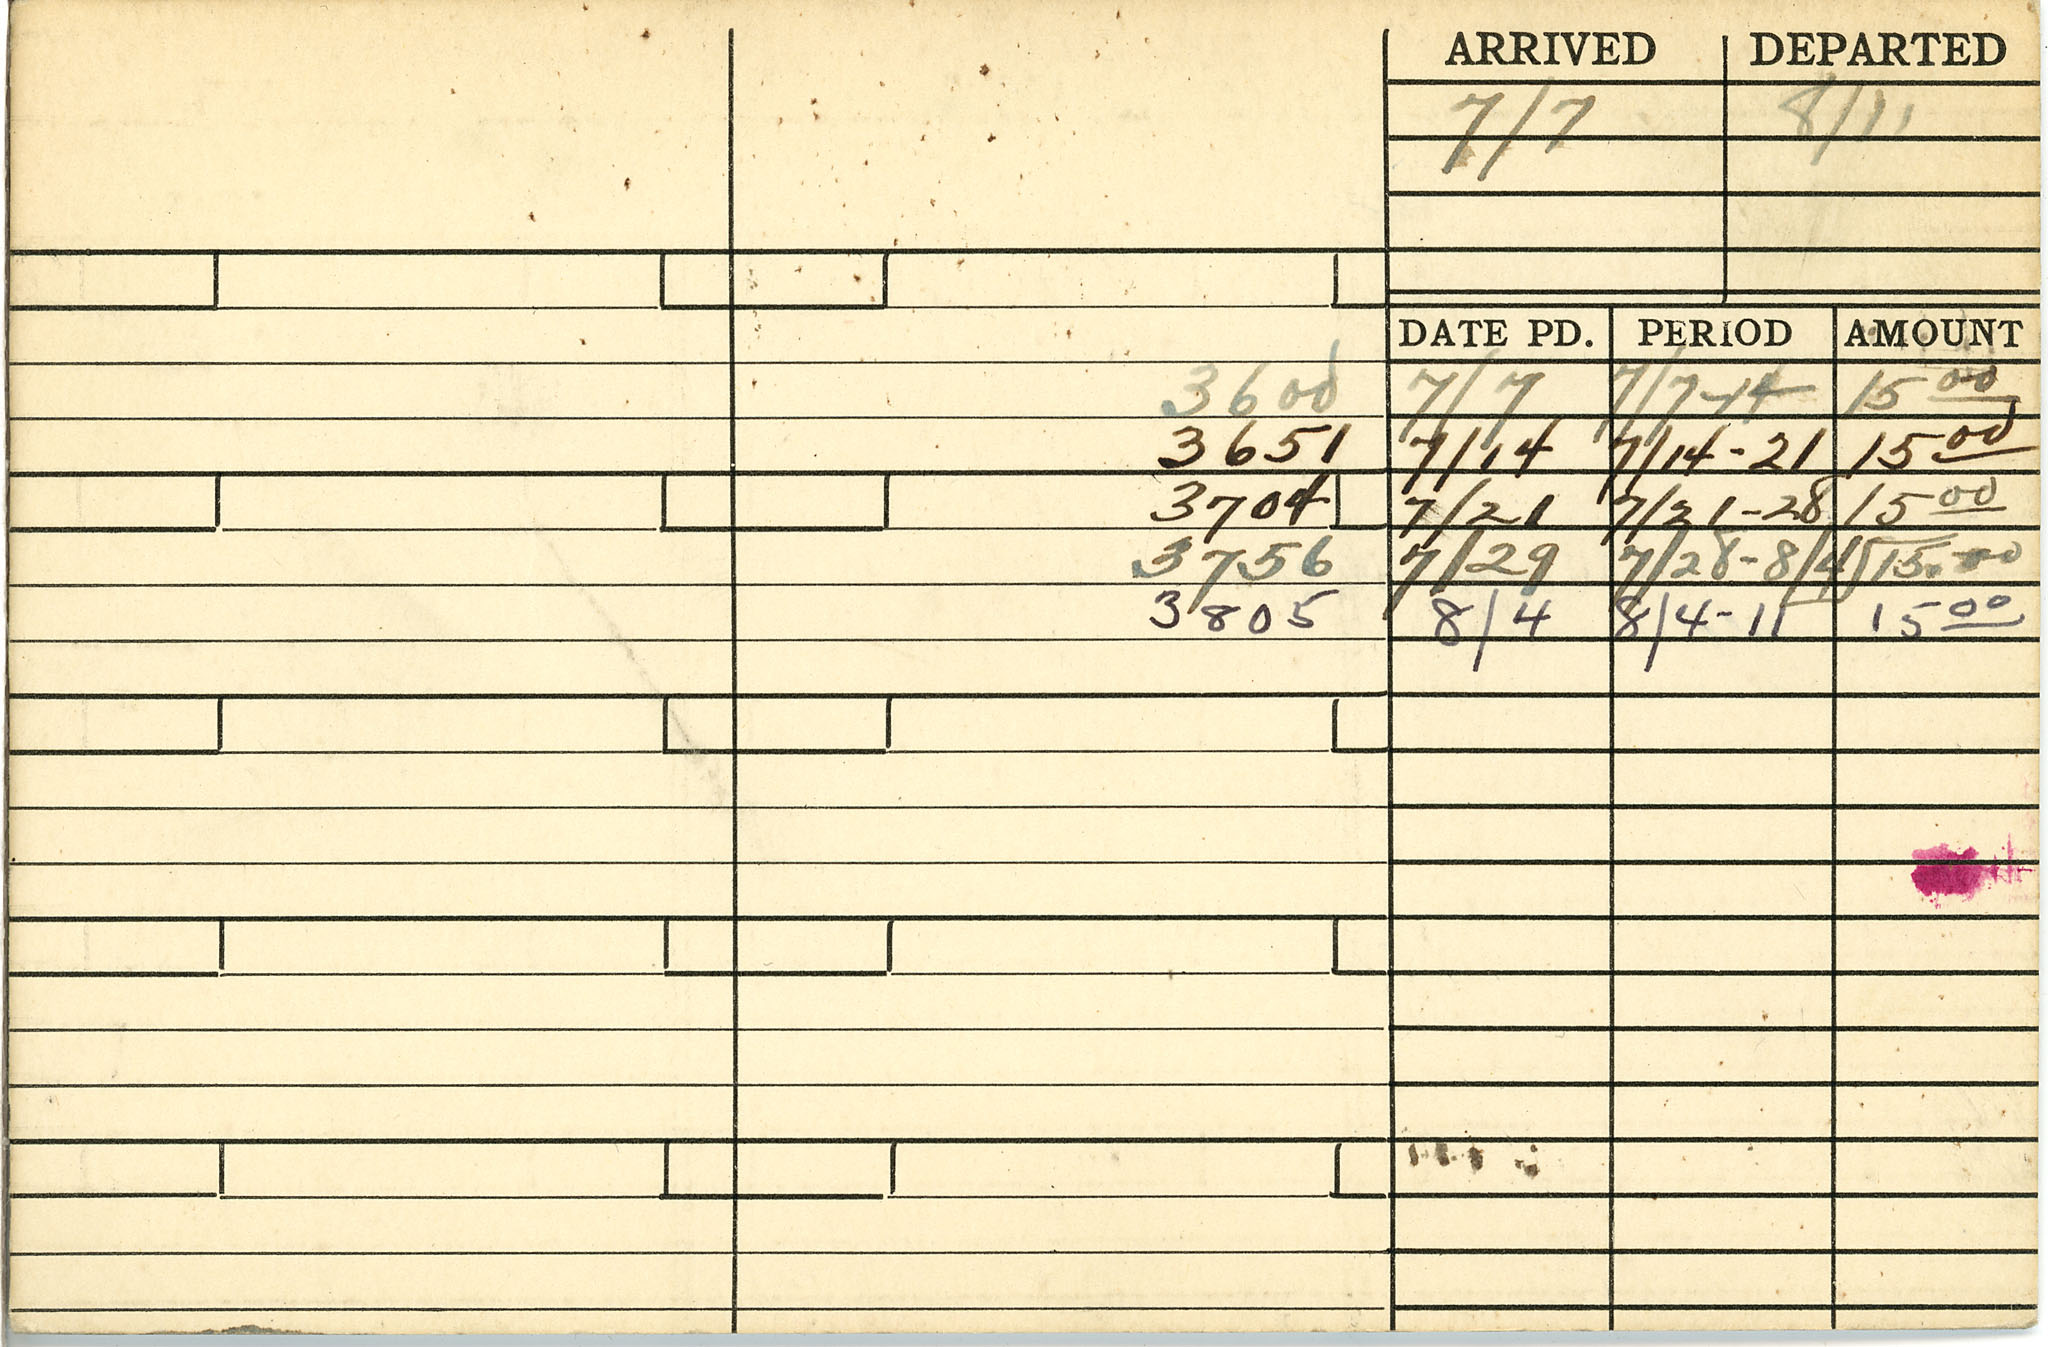 ARRIVED DEPARTED
7/7 8/11
DATE PD. PERIOD AMOUNT
3600 7/7 7/7-14 15 00
3651 7/14 7/14-21 15 00
3704 7/21 7/21-28 15 00
3756 7/29 7/28-8/4 15.00
3805 8/4 8/4-11 15 00